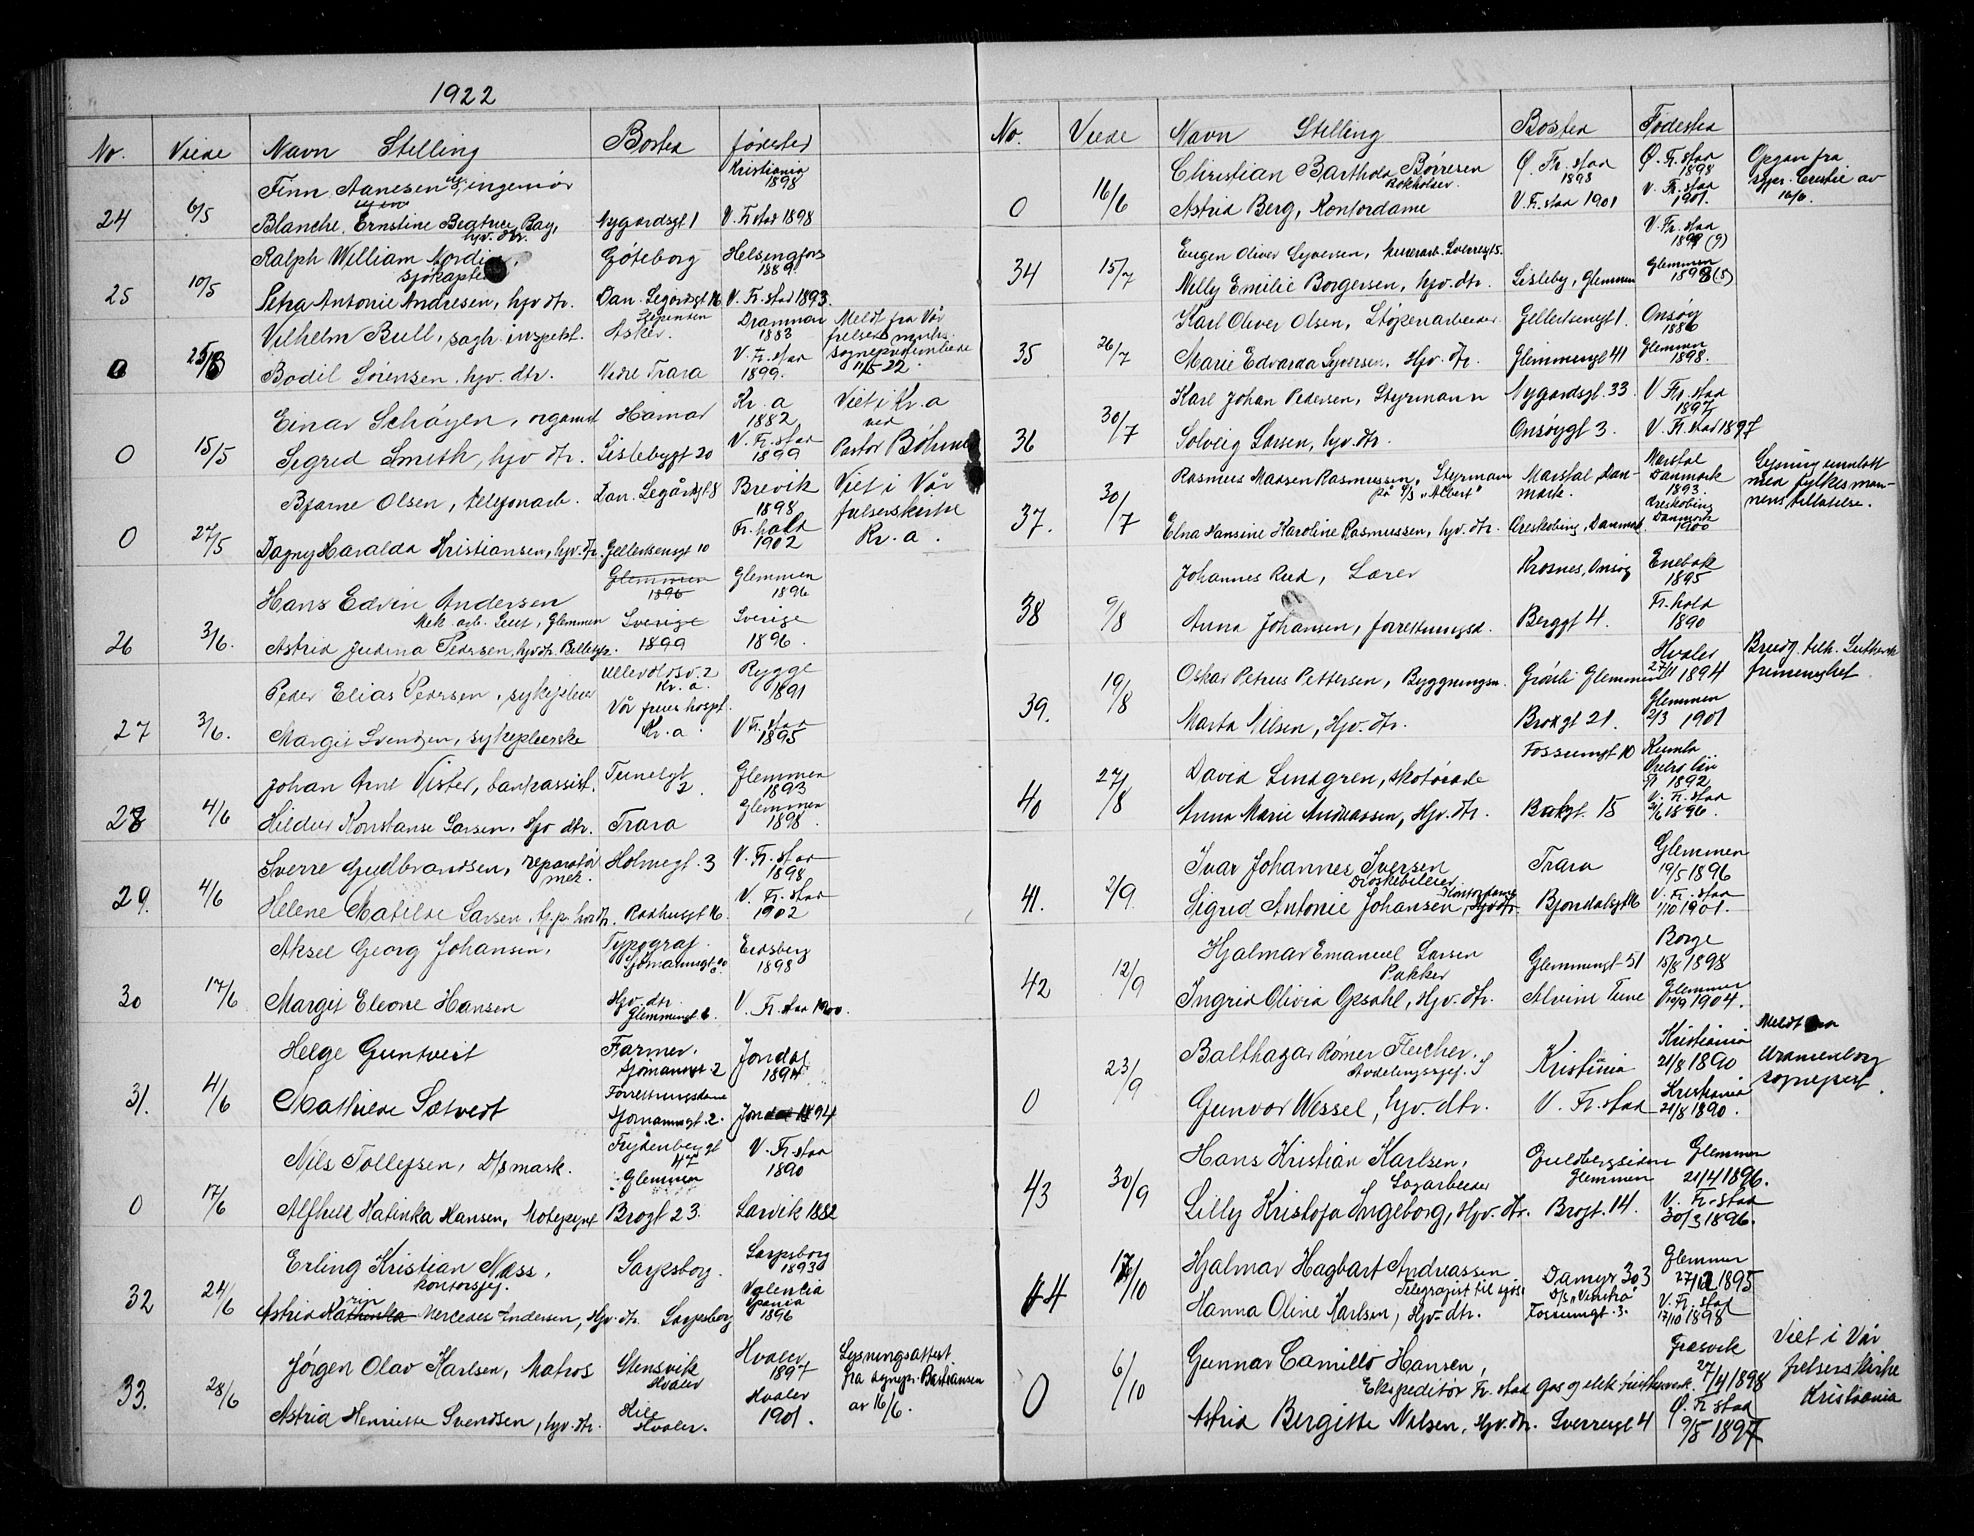 1922
No. Viede Navn Stilling Bosted fødested
Finn Aanesen, ingeniør Kristiania 1898
24 6/5 Blanche Ernstine Beatrice Bay, hjv. dtr. Nygårdsgt 1 V. Fr stad 1898
Ralph William Nordin, sjökaptein Göteborg Helsingfors 1889.
25 10/5 Petra Antonie Andresen, hjv dtr. Dan. Legårdsgt 16 V. Fr. stad 1893.
Vilhelm Bull, sagh. inspekt. Slependen Asker. Drammen 1883 Meldt fra Vår
frelsers menighs.
sogneprestembede
11/5 22.
0 25/3 Bodil Sörensen, hjv. dtr. Nedre Trara V. Fr. stad 1899.
Einar Schøyen, organist Hamar Kr. a 1882 Viet i Kr. a
ved
Pastor Böhmer
0 15/5 Sigrid Smith, hjv dtr. Lislebygt 20 V. Fr. stad 1899
Bjarne Olsen, telefonarb. Dan. Legårdsgt 8 Brevik 1898 Viet i Vår
frelserskirke
Kr. a.
0 27/5 Dagny Haralda Kristiansen, hjv. dtr. Gellertsensgt 10 Fr. hald 1902
Hans Edvin Andersen Glemmen 1896 Glemmen 1896
Mek. arb. Leiet, Glemmen
26 3/6. Astrid Judina Pedersen, hjv dtr. Sverige 1899 Sverige 1896.
Peder Elias Pedersen, sykepleier Ullevoldsv. 2 Kr. a. Rygge 1891
27 3/6. Margit Svendsen, sykepleierske Vår freiers hospt. Kr. a. V Fr. stad 1895
Johan Arnt Vister, bankassist. Tunelgt 2. Glemmen 1893
28 4/6 Hildur Konstanse Larsen, Hjv dtr. Trara Glemmen 1898.
Sverre Gudbrandsen, reparatör mek. Holmegt. 3 V. Fr. stad 1898
29. 4/6 Helene Matilde Larsen, hjv dtr. Raadhusgt 16. V. Fr. stad 1902
Aksel Georg Johansen, Typograf. Sjömannsgt Eidsberg 1898
30 17/6 Margit Eleone Hansen Hjv. dtr. Glemmengt 6. V. Fr. stad 1900.
Helge Guntveit Farmer. Sjömannsgt 2 Jondal 1894
31. 4/6 Mathilde Sætveit Forretningsdame Sjömannsgt. 2. Jondal 1894
Nils Tollefsen, D/s mask. Frydenbergt 47 Glemmen V. Fr. stad 1890
0 17/6 Alfhild Katinka Hansen, Brogt 23. Larvik 1882
Erling Kristian Næss, kontorsjef. Sarpsborg. Sarpsborg 1893
32 24/6 Astrid Katrin Mercedes Andersen, Hjv. dtr. Sarpsborg Valencia Spania 1896
Jørgen Olav Karlsen, Matros Stensvik Hvaler Hvaler 1897 Lysningsattest
fra sognepr. Bastiansen
av 16/6.
33. 28/6 Astrid Henriette Svendsen, hjv. dtr. Kile Hvaler. Hvaler 1901.
No. Viede Navn Stilling Bosted Födested
Christian Barthold Börresen Bokholder. Ø. Fr. stad 1898 Ø. Fr. stad 1898 Opgav fra
sgpr. Cristie av
16/6.
0 16/6 Astrid Berg, Kontordame V. Fr. stad 1901 V. Fr. stad 1901.
Eugen Oliver Syversen, Sverresgt 5. V. Fr. stad 1899 (9)
34 15/7 Nelly Emilie Borgersen, hjv. dtr. Lisleby, Glemmen Glemmen 1898 (8)
Karl Oliver Olsen, Støperiarbeider Gellertsensgt 1. Onsøy 1886
35 26/7 Marie Edvarda Syversen, Hjv. dtr. Glemmengt 41 Glemmen 1898.
Karl Johan Pedersen, Styrmann Nygårdsgt. 33 V. Fr. stad 1897
36 30/7 Solveig Larsen, hjv. dtr. Onsøygt 3. V. Fr. stad 1897
Rasmus Madsen Rasmussen, Styrmann på S/S "Albert" Marstal, Danmark. Marstal Danmark 1893. Lysning unnlatt
med fylkesman-
nens tillatelse.
37. 30/7 Elna Hansine Karoline Rasmussen, hjv. dtr. Æreskøbing, Danmark Æreskobing Danmark 1900
Johannes Rud, Lærer Krosnes, Onsøy Enebak 1895
38 9/8 Anna Johansen, forretningsd. Berggt 4. Fr. hald 1890
Oskar Petrus Pettersen, Byggningsm. Grönli Glemmen Hvaler 27/11 1894
frimenighet
39. 19/8 Marta Nilsen, Hjv. dtr. Brogt 21. Glemmen 2/3 1901
David Lindgren, skotöiarb Fossumgt 10 Kumla Örebro län 1892
40 27/8 Anna Marie Andreassen, Hjv. dtr. Bakgt. 15 V. Fr. stad 1896.
Ivar Johannes Iversen Droskebileier Trara Glemmen 19/5 1896
41. 2/9. Sigrid Antonie Johansen, Kontordame Hjv dtr. Bjørndalsgt 16 V. Fr. stad 1/10 1901.
Hjalmar Emanuel Larsen Pakker Glemmengt 51 Borge 15/8 1898
42 12/9 Ingrid Olivia Opsahl, Hjv. dtr. Alvim Tune Glemmen 10/9 1904.
Balthazar Römer Fleicher. Avdelingssjef. Kristinia Kristiania 21/8 1890 Meldt fra
Uranienborg
sognepest.
0 23/9 Gunvor Wessel, hjv. dtr. V. Fr. stad Kristiania 21/8 1890.
Hans Kristian Karlsen, Sagarbeider Guldbergsiden Glemmen Glemmen 21/4 1896.
43 30/9 Lilly Kristofa Ingeborg, Hjv. dtr. Brogt. 14. V. Fr. stad 30/3 1896.
Hjalmar Hagbart Andreassen Telegrafist til sjøs Damyr 303 Glemmen 27/12 1895
44 17/10 Hanna Oline Karlsen, Hjv. dtr. Fossumgt. 3. V. Fr. stad 17/10 1898
Gunnar Camillo Hansen, Græsvik 27/4 1898 Viet i Vår
frelsers kirke
Kristiania
Ekspeditör Fr. stad Gas og elek
0 6/10 Astrid Bergitte Nilsen, Hjv. dtr. Sverresgt 4 Ø. Fr stad 9/5 1897